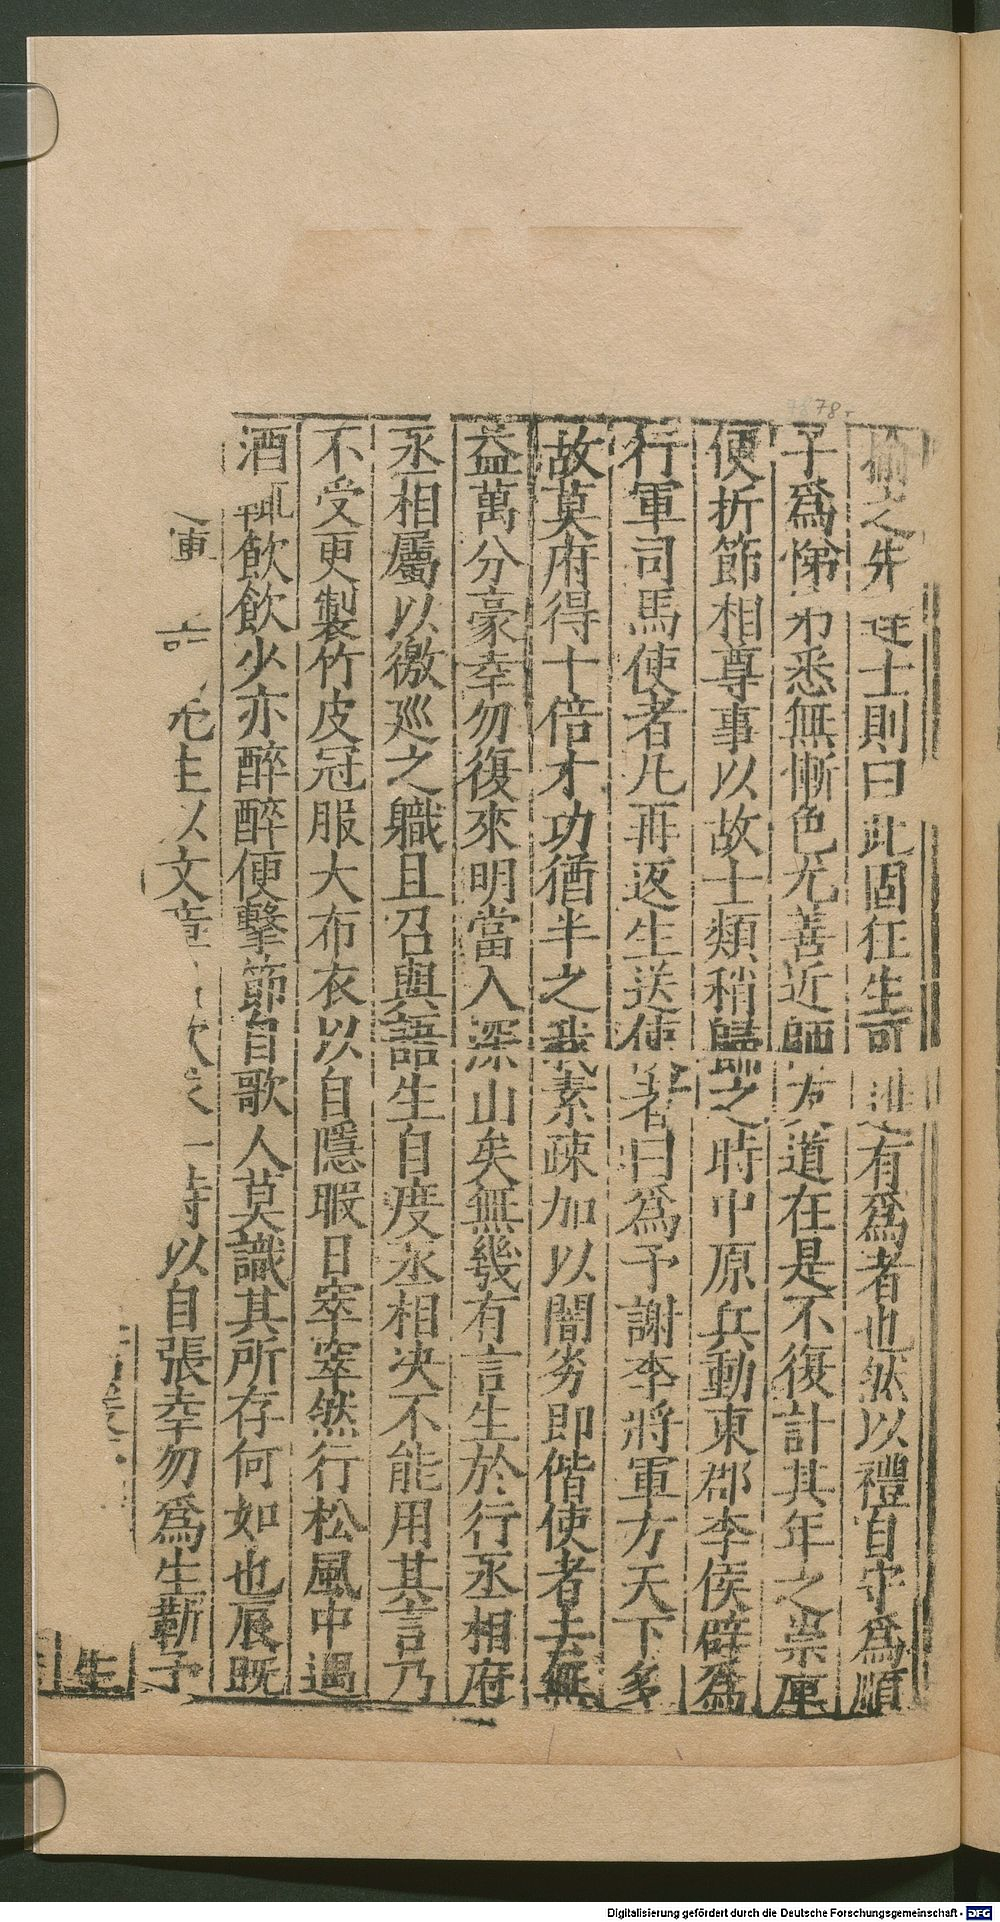 78
愉之先進士則曰此固任生可進有爲者也然以禮自守爲順
子爲悌弟悉無慚色尤善近師友道在是不復計其年之崇庳
便折節相尊事以故士類稍歸之時中原兵動東郡李侯辟爲
行軍司馬使者凡再返生送使者曰爲予謝李將軍方天下多
故莫府得十倍才功猶半之我素疎加以闇劣即偕使者去無
益萬分豪幸勿復來明當入深山矣無幾有言生於行丞相府
丞相屬以徼廵之職且召與語生自度丞相决不能用其言乃
不受更製竹皮冠服大布衣以自隱暇日窣窣然行松風中遇
酒輒飲飲少亦醉醉便擊節自歌人莫識其所存何如也辰既
先生以文章 一時以自張幸勿爲生靳予
生
Digitalisierung gefördert durch die Deutsche Forschungsgemeinschaft - DFG